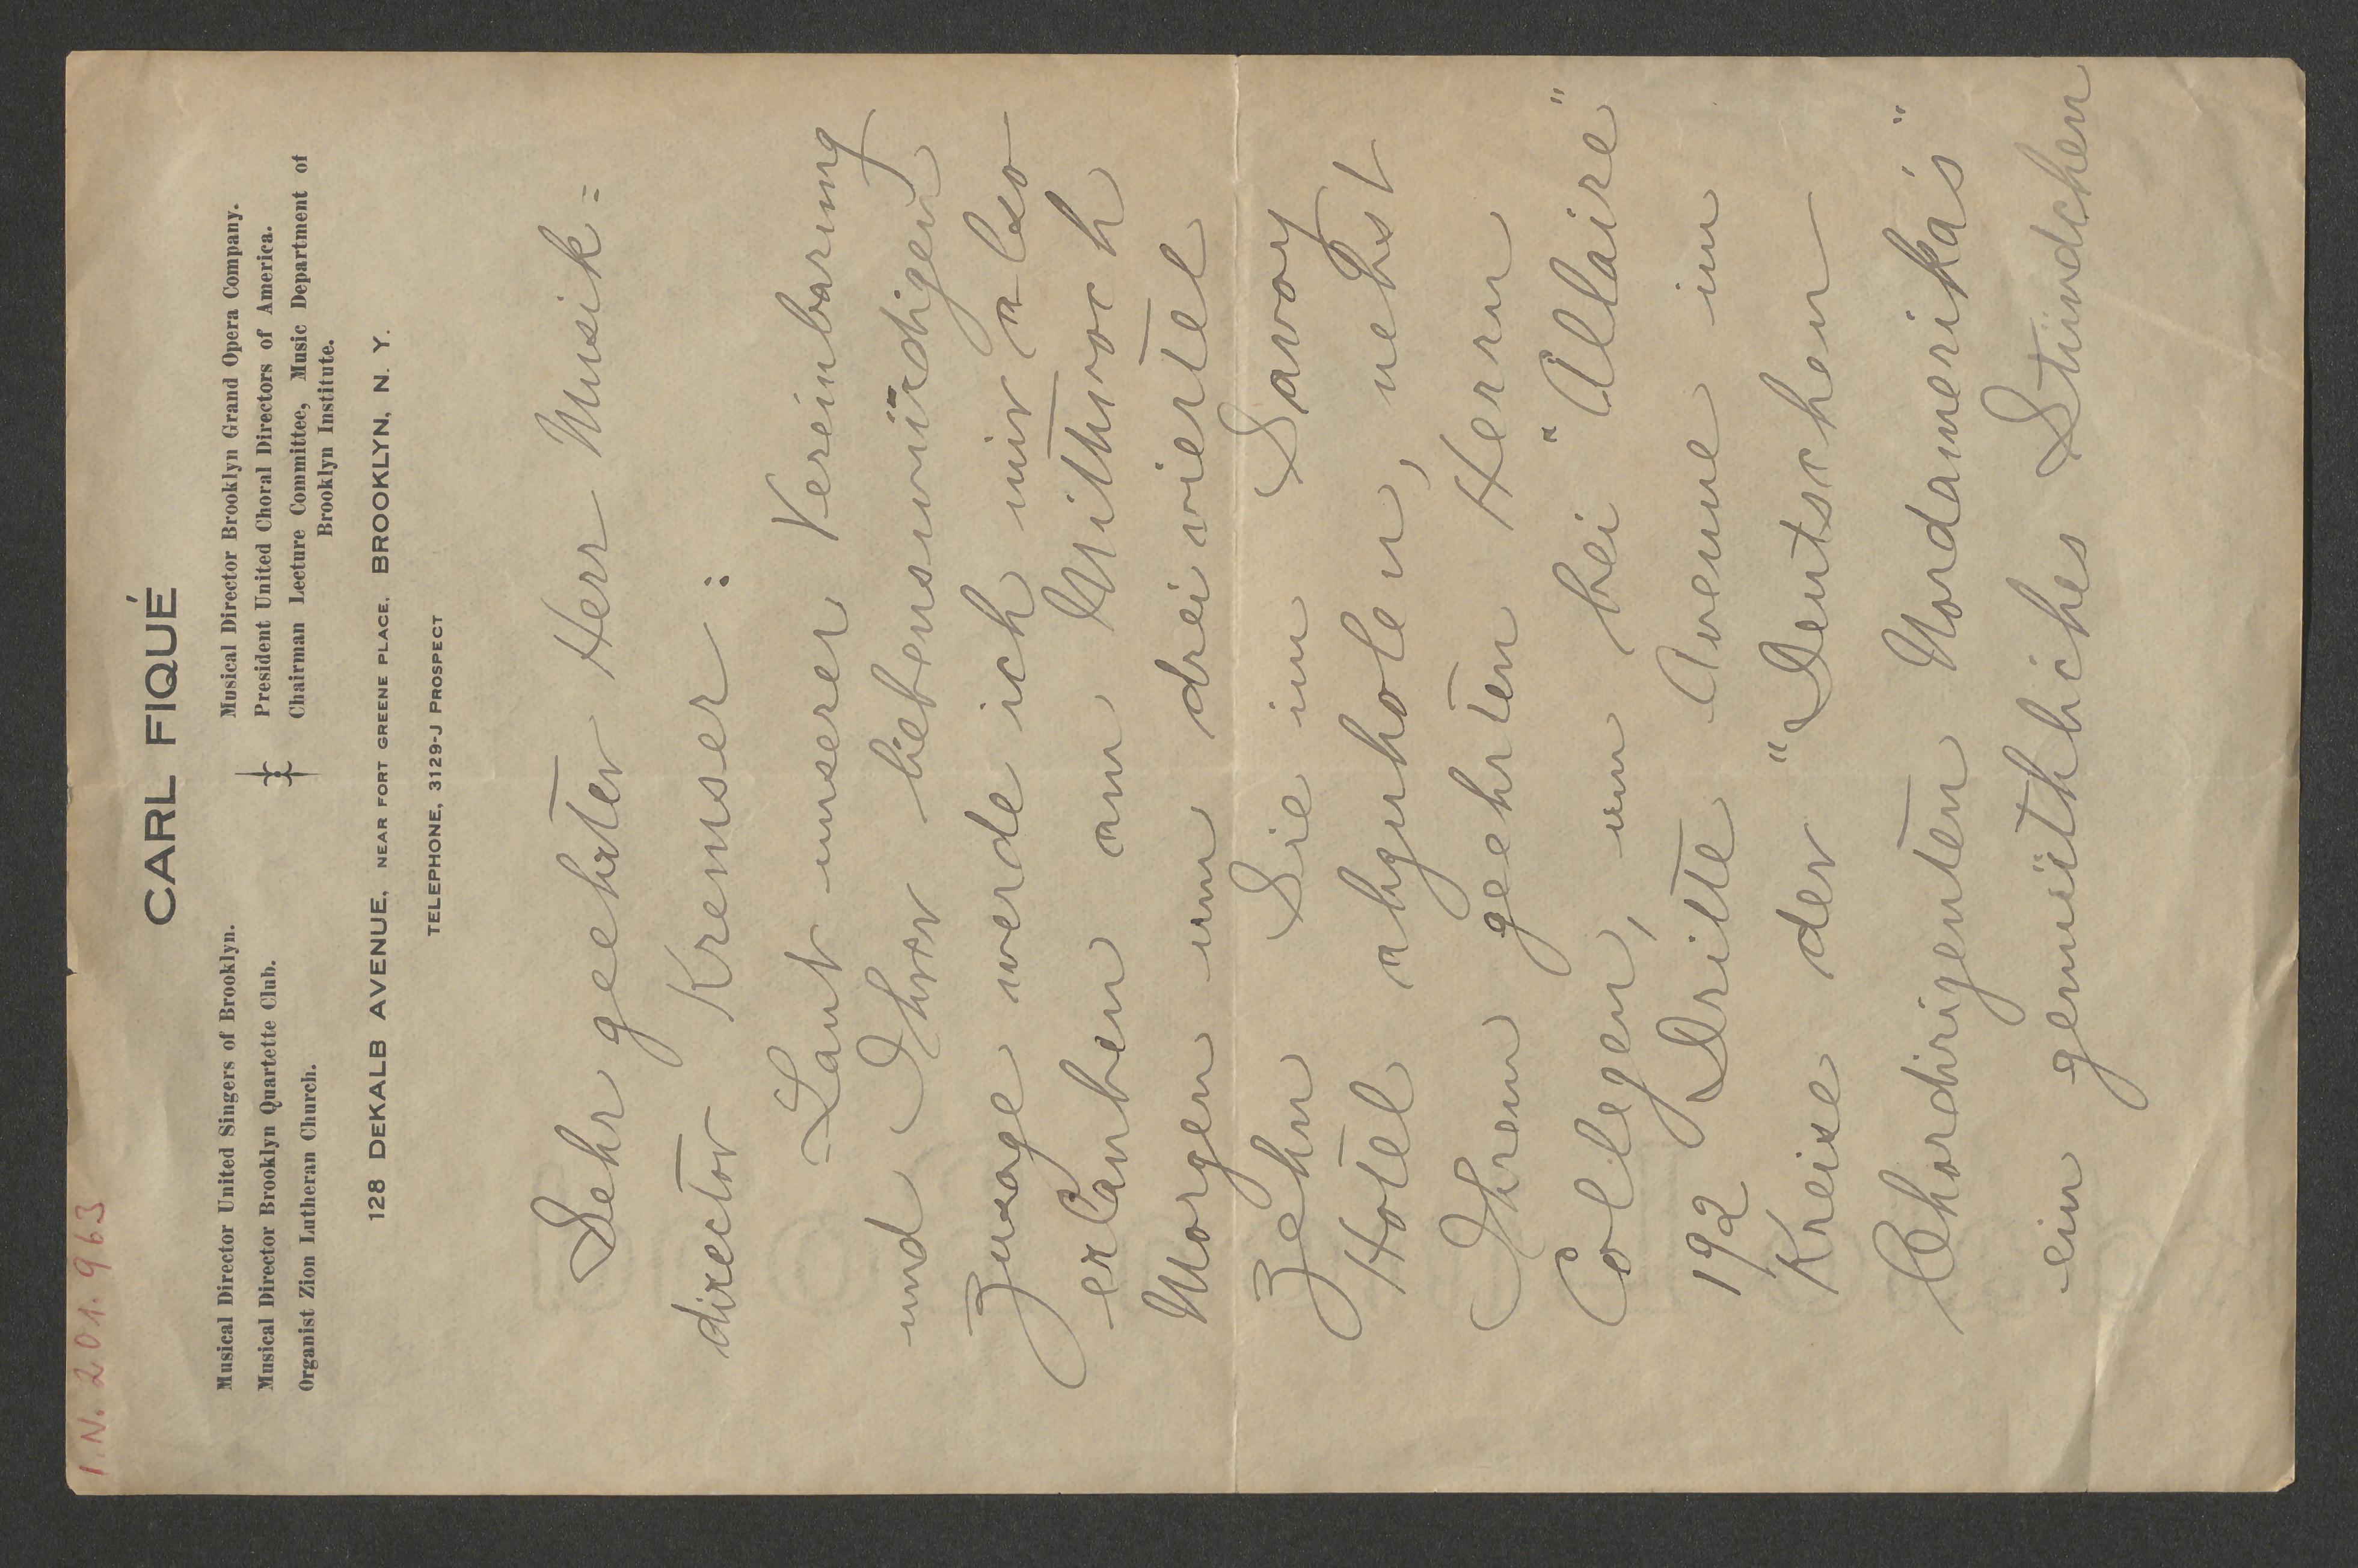 I.N. 201.963
CARL FIQUÉ
Musical Director United Singers of Brooklyn.
Musical Director Brooklyn Quartette Club.
Organist Zion Lutheran Church.
Musical Director Brooklyn Grand Opera Company.
President United Choral Directors of America.
Chairman Lecture Committee, Music Department of
Brooklyn Institute.
128 DEKALB AVENUE, NEAR FORT GREENE PLACE, BROOKLYN, N. Y.
TELEPHONE, 3129-J PROSPECT
Sehr geehrter Herr Musik=
director Kremser:
Laut unserer Vereinbarung
und Ihrer liebenswürdigen
Zusage werde ich mir also
erlauben am Mittwoch
Morgen um dreiviertel
Zehn Sie im Savoy
Hotel abzuholen, nebst
Ihrem geehrten Herrn
Collegen, um bei "Allaire"
192 Dritte Avenue im
Kreise der "Deutschen
Chordirigenten Nordamerika's"
ein gemüthliches Stündchen